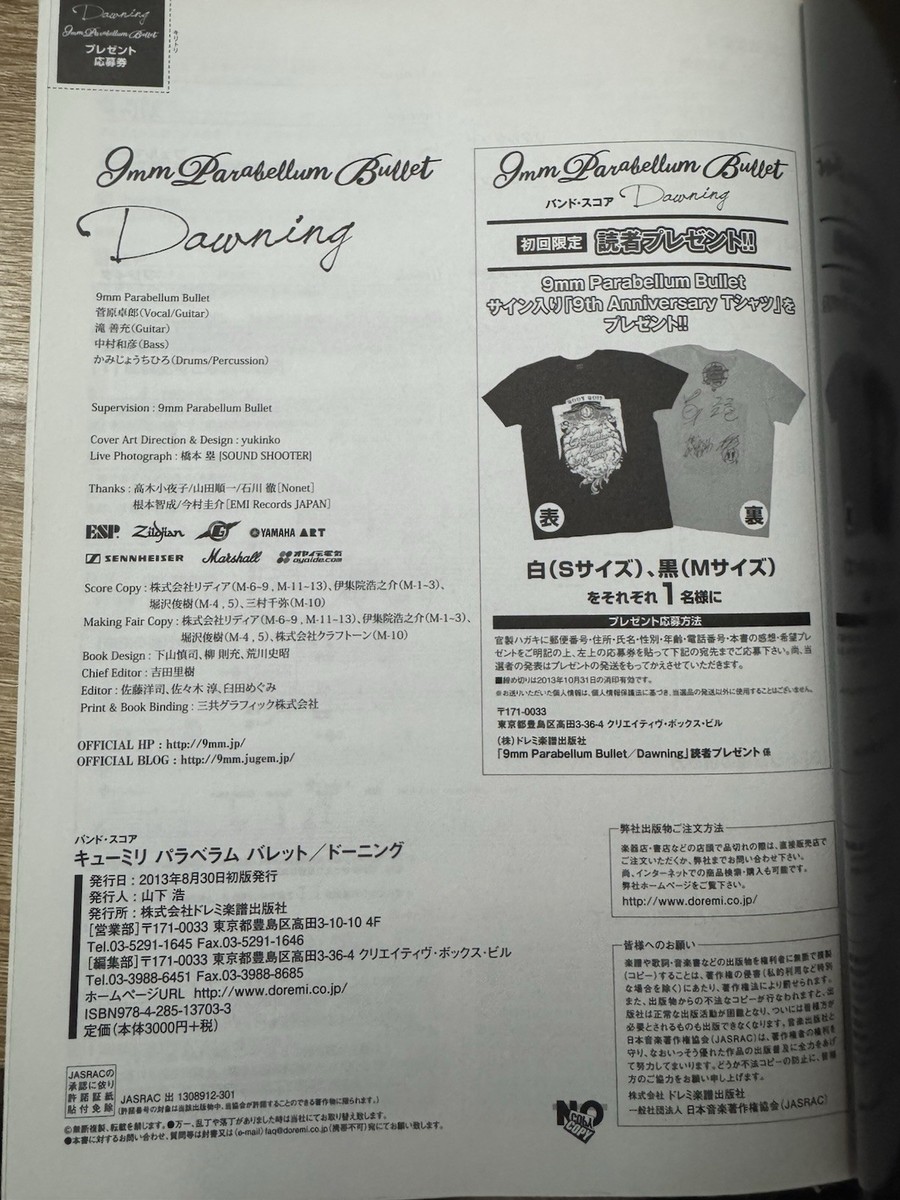 Dawning
9mm Parabellum Bullet
プレゼント
応募券
キリトリ
9mm Parabellum Bullet
Dawning
9mm Parabellum Bullet
菅原卓郎(Vocal/Guitar)
滝 善充(Guitar)
中村和彦(Bass)
かみじょうちひろ(Drums/Percussion)
Supervision : 9mm Parabellum Bullet
Cover Art Direction & Design : yukinko
Live Photograph : 橋本 塁 [SOUND SHOOTER]
Thanks : 高木小夜子/山田順一/石川 徹[Nonet]
根本智成/今村圭介[EMI Records JAPAN]
ESP Zildjian G YAMAHA ART
SENNHEISER Marshall オヤイデ電気 oyaide.com
Score Copy : 株式会社リディア(M-6~9 , M-11~13)、伊集院浩之介(M-1~3)、
堀沢俊樹(M-4 , 5)、三村千弥(M-10)
Making Fair Copy : 株式会社リディア(M-6~9 , M-11~13)、伊集院浩之介(M-1~3)、
堀沢俊樹(M-4 , 5)、株式会社クラフトーン(M-10)
Book Design : 下山慎司、柳 則充、荒川史昭
Chief Editor : 吉田里樹
Editor : 佐藤洋司、佐々木 淳、臼田めぐみ
Print & Book Binding : 三共グラフィック株式会社
OFFICIAL HP : http://9mm.jp/
OFFICIAL BLOG : http://9mm.jugem.jp/
9mm Parabellum Bullet
バンド・スコア Dawning
初回限定 読者プレゼント!!
9mm Parabellum Bullet
サイン入り「9th Anniversary Tシャツ」を
プレゼント!!
表
裏
白(Sサイズ)、黒(Mサイズ)
をそれぞれ1名様に
プレゼント応募方法
官製ハガキに郵便番号・住所・氏名・性別・年齢・電話番号・本書の感想・希望プレ
ゼントをご明記の上、左上の応募券を貼って下記の宛先までご応募下さい。尚、当
選者の発表はプレゼントの発送をもってかえさせていただきます。
■締め切りは2013年10月31日の消印有効です。
※お送りいただいた個人情報は、個人情報保護法に基づき、当選品の発送以外に使用することはございません。
〒171-0033
東京都豊島区高田3-36-4 クリエイティヴ・ボックス・ビル
(株)ドレミ楽譜出版社
「9mm Parabellum Bullet/Dawning」読者プレゼント 係
バンド・スコア
キューミリ パラベラム バレット/ドーニング
発行日 : 2013年8月30日初版発行
発行人 : 山下 浩
発行所 : 株式会社ドレミ楽譜出版社
[営業部]〒171-0033 東京都豊島区高田3-10-10 4F
Tel.03-5291-1645 Fax.03-5291-1646
[編集部]〒171-0033 東京都豊島区高田3-36-4 クリエイティヴ・ボックス・ビル
Tel.03-3988-6451 Fax.03-3988-8685
ホームページURL http://www.doremi.co.jp/
ISBN978-4-285-13703-3
定価(本体3000円+税)
JASRACの
承認に依り
許諾証紙
貼付免除
JASRAC 出 1308912-301
(許諾番号の対象は当該出版物中、当協会が許諾することのできる著作物に限られます。)
©無断複製、転載を禁じます。●万一、乱丁や落丁がありました時は当社にてお取り替え致します。
●本書に対するお問い合わせ、質問等は封書又は(e-mail)faq@doremi.co.jp(携帯不可)宛にてお願い致します。
弊社出版物ご注文方法
楽器店・書店などの店頭で品切れの際は、直接販売店で
ご注文いただくか、弊社までお問い合わせ下さい。
尚、インターネットでの商品検索・購入も可能です。
弊社ホームページをご覧下さい。
http://www.doremi.co.jp/
皆様へのお願い
楽譜や歌詞・音楽書などの出版物を権利者に無断で複製
(コピー)することは、著作権の侵害(私的利用など特別
な場合を除く)にあたり、著作権法により罰せられます。
また、出版物からの不法なコピーが行なわれますと、出
版社は正常な出版活動が困難となり、ついには皆様方が
必要とされるものも出版できなくなります。音楽出版社と
日本音楽著作権協会(JASRAC)は、著作者の権利を
守り、なおいっそう優れた作品の出版普及に全力をあげ
て努力してまいります。どうか不法コピーの防止に、皆様
方のご協力をお願い申し上げます。
株式会社 ドレミ楽譜出版社
一般社団法人 日本音楽著作権協会(JASRAC)
NO COPY